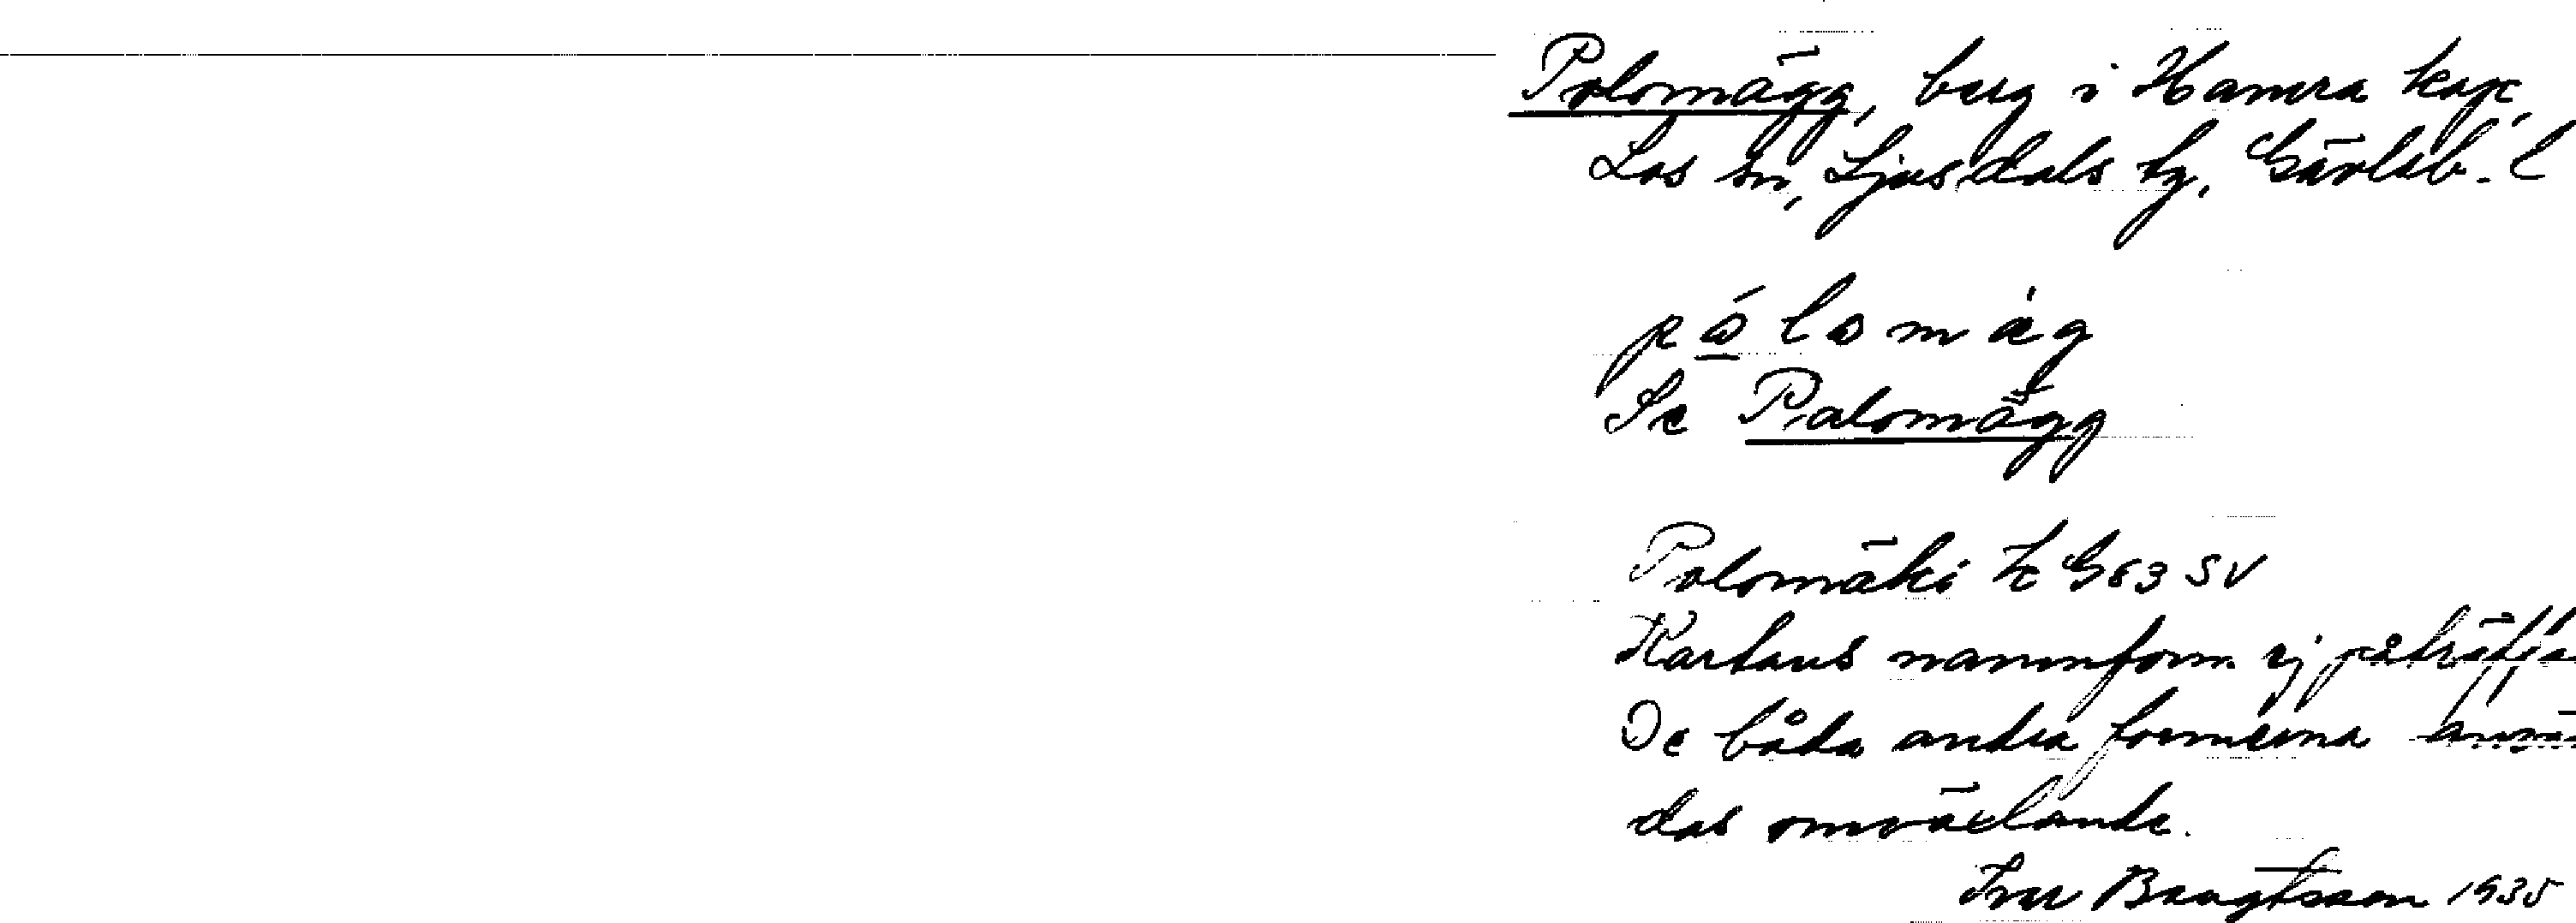 Polomägg, berg i Hamra kap,
Los sn, Ljusdals tg, Gävleb. l
Se Palomägg
Polomäki K G 63 SV
Kartans namnform ej påträffa
De båda andra formerna anvä
das omväxlande.
Ivar Bengtsson 1935